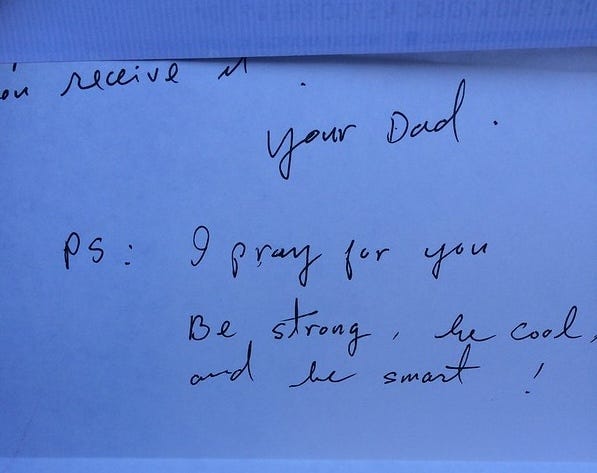 receive it .
Your Dad .
PS : I pray for you
Be strong , be cool,
and be smart !